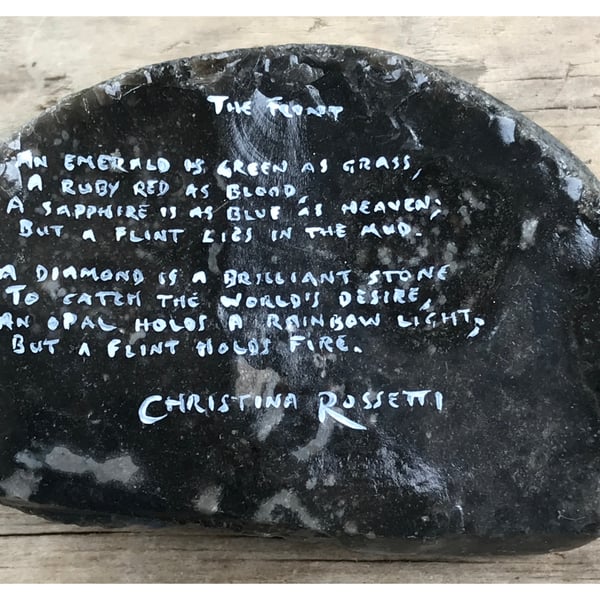 THE FLINT
AN EMERALD IS GREEN AS GRASS,
A RUBY RED AS BLOOD,
A SAPPHIRE IS AS BLUE AS HEAVEN;
BUT A FLINT LIES IN THE MUD.
A DIAMOND IS A BRILLIANT STONE
TO CATCH THE WORLD'S DESIRE,
AN OPAL HOLDS A RAINBOW LIGHT;
BUT A FLINT HOLDS FIRE.
CHRISTINA ROSSETTI